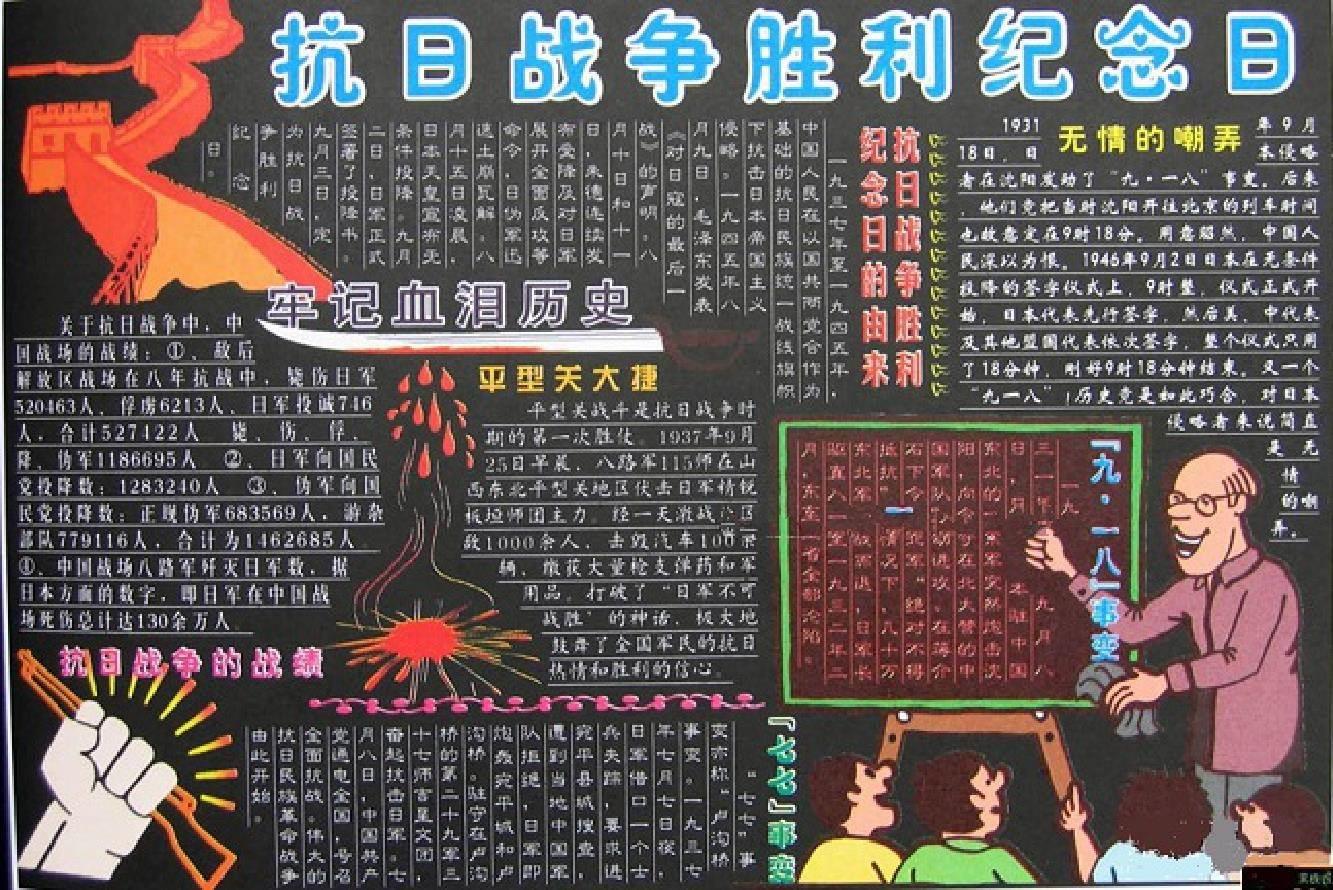 抗日战争胜利纪念日
抗日战争胜利
纪念日的由来
一九三七年至一九四五年，
中国人民在以国共两党合作为
基础的抗日民族统一战线旗帜
下抗击日本帝国主义
侵略。一九四五年八
月九日，毛泽东发表
《对日寇的最后一
战》的声明。八
月十日和十一
日，朱德连续发
布受降及对日军
展开全面反攻等
命令，日伪军迅
速土崩瓦解。八
月十五日凌晨，
日本天皇宣布无
条件投降。九月
二日，日军正式
签署了投降书。
九月三日，定
为抗日战
争胜利
纪念
日。
无情的嘲弄
1931 年9月
18日，日 本侵略
者在沈阳发动了“九·一八”事变。后来
，他们竟把当时沈阳开往北京的列车时间
也故意定在9时18分。用意昭然，中国人
民深以为恨。1946年9月2日日本在无条件
投降的签字仪式上，9时整，仪式正式开
始，日本代表先行签字，然后美、中代表
及其他盟国代表依次签字，整个仪式只用
了18分钟，刚好9时18分钟结束。又一个
“九一八”！历史竟是如此巧合，对日本
侵略者来说简直
是无
情
的嘲
弄。
牢记血泪历史
关于抗日战争中，中
国战场的战绩：①、敌后
解放区战场在八年抗战中，毙伤日军
520463人、俘虏6213人、日军投诚746
人，合计527422人 毙、伤、俘、
降、伪军1186695人 ②、日军向国民
党投降数：1283240人 ③、伪军向国
民党投降数：正规伪军683569人，游杂
部队779116人，合计为1462685人
④、中国战场八路军歼灭日军数，据
日本方面的数字，即日军在中国战
场死伤总计达130余万人。
抗日战争的战绩
平型关大捷
平型关战斗是抗日战争时
期的第一次胜仗。1937年9月
25日早晨，八路军115师在山
西东北平型关地区伏击日军精锐
板垣师团主力。经一天激战
敌1000余人、击毁汽车100余
辆、缴获大量枪支弹药和军
用品。打破了“日军不可
战胜”的神话，极大地
鼓舞了全国军民的抗日
热情和胜利的信心。
「九·一八」事变
一九
三一年九月八
日，日本驻中国
东北的关东军突然炮击沈
阳，向守在北大营的中
国军队进攻。在蒋介
石下令“绝对不得
抵抗”情况下，几十万
东北军一败而退，日军长
驱直入。至一九三二年二
月，东北三省全部沦陷。
「七七」事变
“七七”事
变亦称“卢沟桥
事变”。一九三七
年七月七日夜，
日军借口一个士
兵失踪，要求进
宛平县城搜查，
遭到当地中国军
队拒绝，日军即
炮轰宛平城和卢
沟桥。驻守在卢沟
桥的第二十九军三
十七师官兵，
奋起抗击日军。七
月八日，中国共产
党通电全国，号召
全面抗战。伟大的
抗日民族革命战争
由此开始。